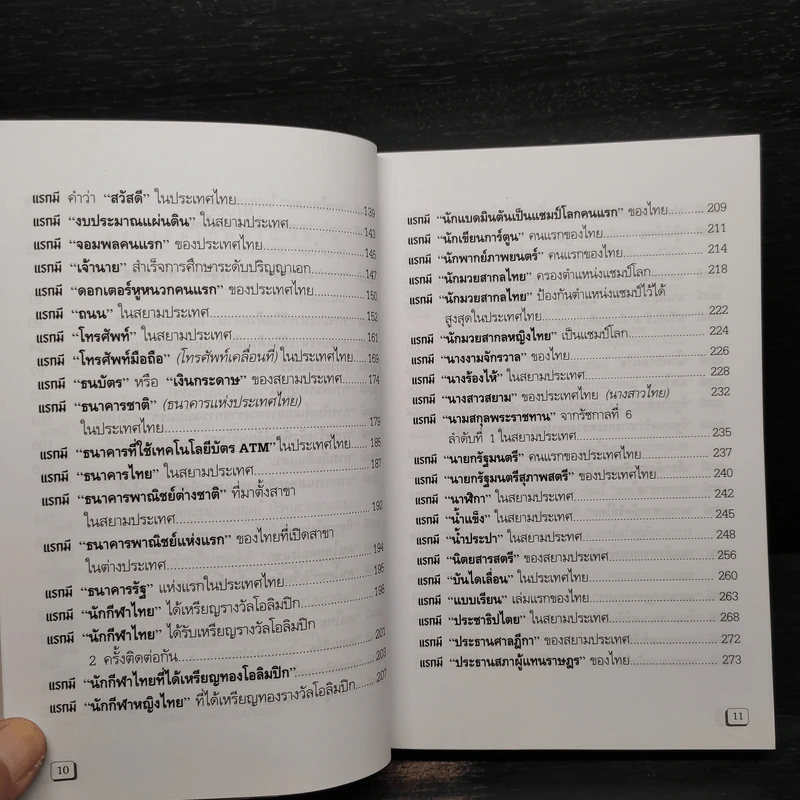 แรกมี คำว่า “สวัสดี” ในประเทศไทย 139
แรกมี “งบประมาณแผ่นดิน” ในสยามประเทศ 143
แรกมี “จอมพลคนแรก” ของประเทศไทย 145
แรกมี “เจ้านาย” สำเร็จการศึกษาระดับปริญญาเอก 147
แรกมี “ดอกเตอร์หูหนวกคนแรก” ของประเทศไทย 150
แรกมี “ถนน” ในสยามประเทศ 152
แรกมี “โทรศัพท์” ในสยามประเทศ 161
แรกมี “โทรศัพท์มือถือ” (โทรศัพท์เคลื่อนที่) ในประเทศไทย 169
แรกมี “ธนบัตร” หรือ “เงินกระดาษ” ของสยามประเทศ 174
แรกมี “ธนาคารชาติ” (ธนาคารแห่งประเทศไทย)
ในประเทศไทย 179
แรกมี “ธนาคารที่ใช้เทคโนโลยีบัตร ATM” ในประเทศไทย 185
แรกมี “ธนาคารไทย” ในสยามประเทศ 187
แรกมี “ธนาคารพาณิชย์ต่างชาติ” ที่มาตั้งสาขา
ในสยามประเทศ 192
แรกมี “ธนาคารพาณิชย์แห่งแรก” ของไทยที่เปิดสาขา
ในต่างประเทศ 194
แรกมี “ธนาคารรัฐ” แห่งแรกในประเทศไทย 195
แรกมี “นักกีฬาไทย” ได้เหรียญรางวัลโอลิมปิก 198
แรกมี “นักกีฬาไทย” ได้รับเหรียญรางวัลโอลิมปิก
2 ครั้งติดต่อกัน 201
แรกมี “นักกีฬาไทยที่ได้เหรียญทองโอลิมปิก” 203
แรกมี “นักกีฬาหญิงไทย” ที่ได้เหรียญทองรางวัลโอลิมปิก 207
10
แรกมี “นักแบดมินตันเป็นแชมป์โลกคนแรก” ของไทย 209
แรกมี “นักเขียนการ์ตูน” คนแรกของไทย 211
แรกมี “นักพากย์ภาพยนตร์” คนแรกของไทย 214
แรกมี “นักมวยสากลไทย” ครองตำแหน่งแชมป์โลก 218
แรกมี “นักมวยสากลไทย” ป้องกันตำแหน่งแชมป์ไว้ได้
สูงสุดในประเทศไทย 222
แรกมี “นักมวยสากลหญิงไทย” เป็นแชมป์โลก 224
แรกมี “นางงามจักรวาล” ของไทย 226
แรกมี “นางร้องไห้” ในสยามประเทศ 228
แรกมี “นางสาวสยาม” ของประเทศไทย (นางสาวไทย) 232
แรกมี “นามสกุลพระราชทาน” จากรัชกาลที่ 6
ลำดับที่ 1 ในสยามประเทศ 235
แรกมี “นายกรัฐมนตรี” คนแรกของประเทศไทย 237
แรกมี “นายกรัฐมนตรีสุภาพสตรี” ของประเทศไทย 240
แรกมี “นาฬิกา” ในสยามประเทศ 242
แรกมี “น้ำแข็ง” ในสยามประเทศ 245
แรกมี “น้ำประปา” ในสยามประเทศ 248
แรกมี “นิตยสารสตรี” ของสยามประเทศ 256
แรกมี “บันไดเลื่อน” ในประเทศไทย 260
แรกมี “แบบเรียน” เล่มแรกของไทย 263
แรกมี “ประชาธิปไตย” ในสยามประเทศ 268
แรกมี “ประธานศาลฎีกา” ของสยามประเทศ 272
แรกมี “ประธานสภาผู้แทนราษฎร” ของไทย 273
11